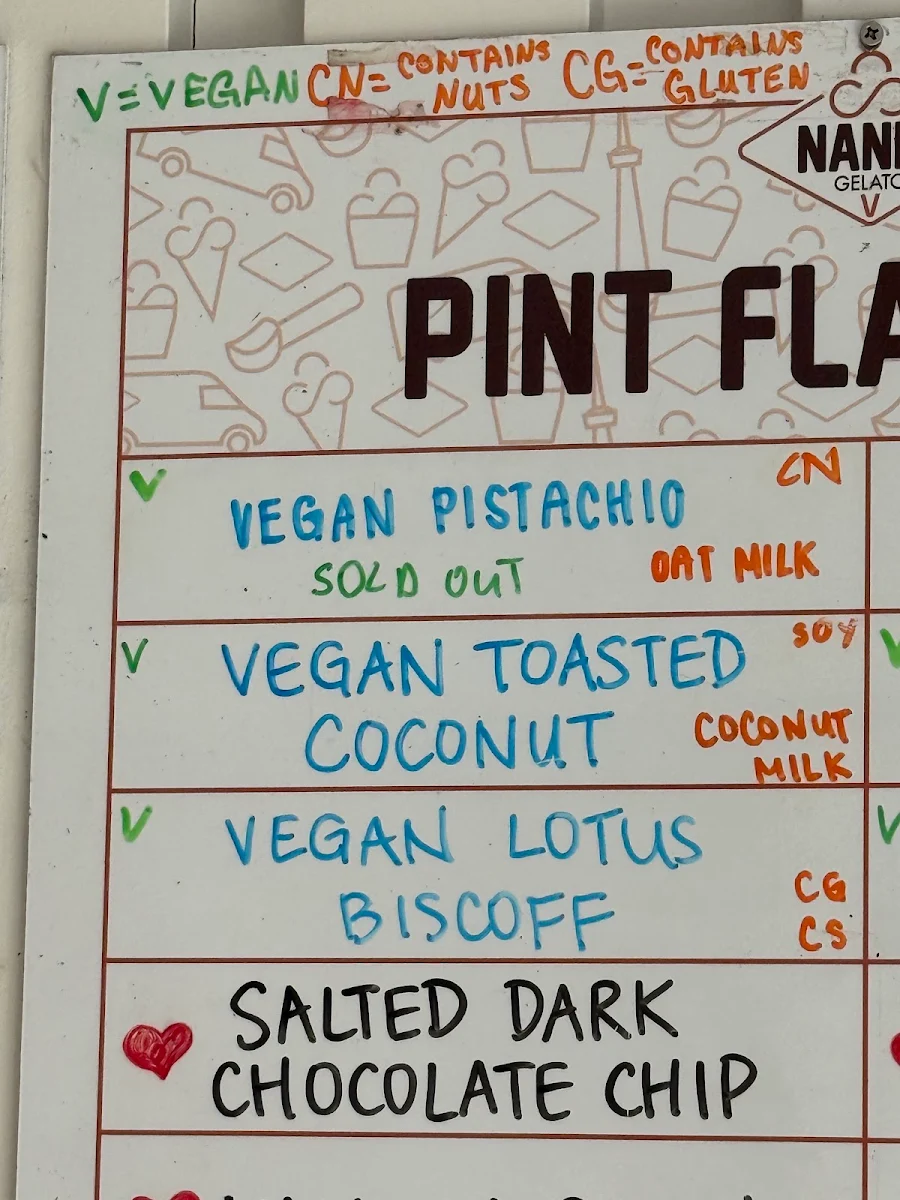 V=VEGAN CN=CONTAINS NUTS CG=CONTAINS GLUTEN
GELATO
PINT
V
CN
VEGAN PISTACHIO
SOLD OUT
OAT MILK
V
SOY
VEGAN TOASTED
COCONUT
COCONUT
MILK
V
VEGAN LOTUS
BISCOFF
CG
CS
SALTED DARK
CHOCOLATE CHIP